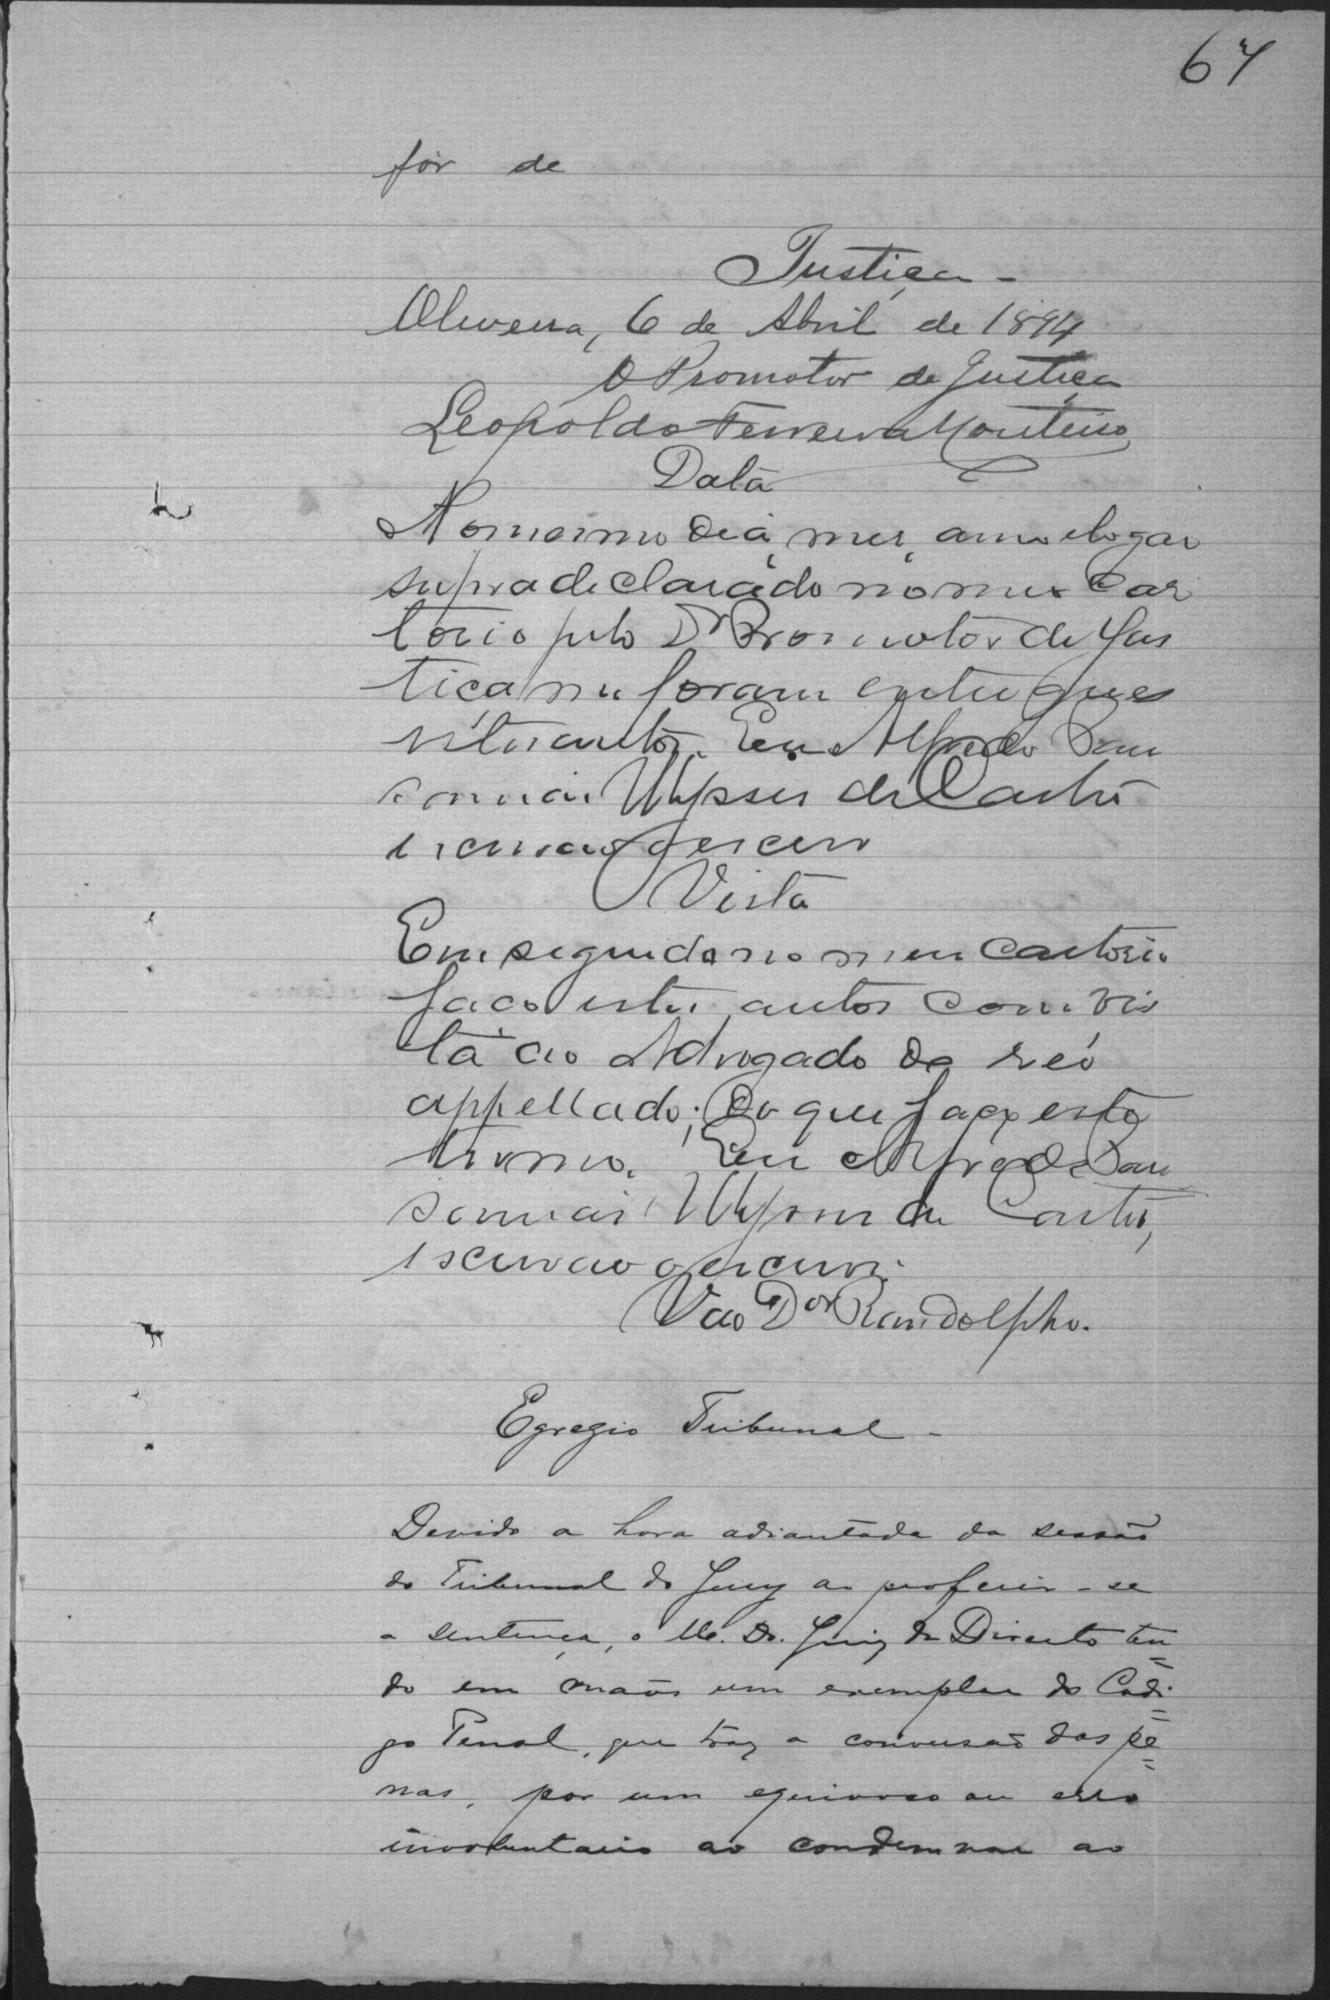 67
fôr de
Justiça -
Oliveira, 6 de Abril de 1894
O Promotor de Justiça
Leopoldo Ferreira Monteiro
Data
No mesmo dia, mez, anno e logar
supra declarado no meu Car
torio pelo Dr Promotor de Jus
tiça me foram entregues
estes autos. Eu Alfredo San
sonnias Ulysses de Castro
escrivão o escrevi
Vista
Em seguida no meu cartorio
faço estes autos com vis
ta ao Advogado do réo
appellado; do que faço este
termo. Eu Alfredo San
sonnias Ulysses de Castro,
escrivão o escrevi.
V ao Dor Randolpho.
Egregio Tribunal -
Devido a hora adiantada da sessão
do Tribunal do Jury ao proferir-se
a sentença, o M. Dr. Juiz de Direito ten
do em mãos um exemplar do Codi
go Penal, que traz a conversão das pe
nas, por um equivoco ou erro
involuntario ao condemnar ao